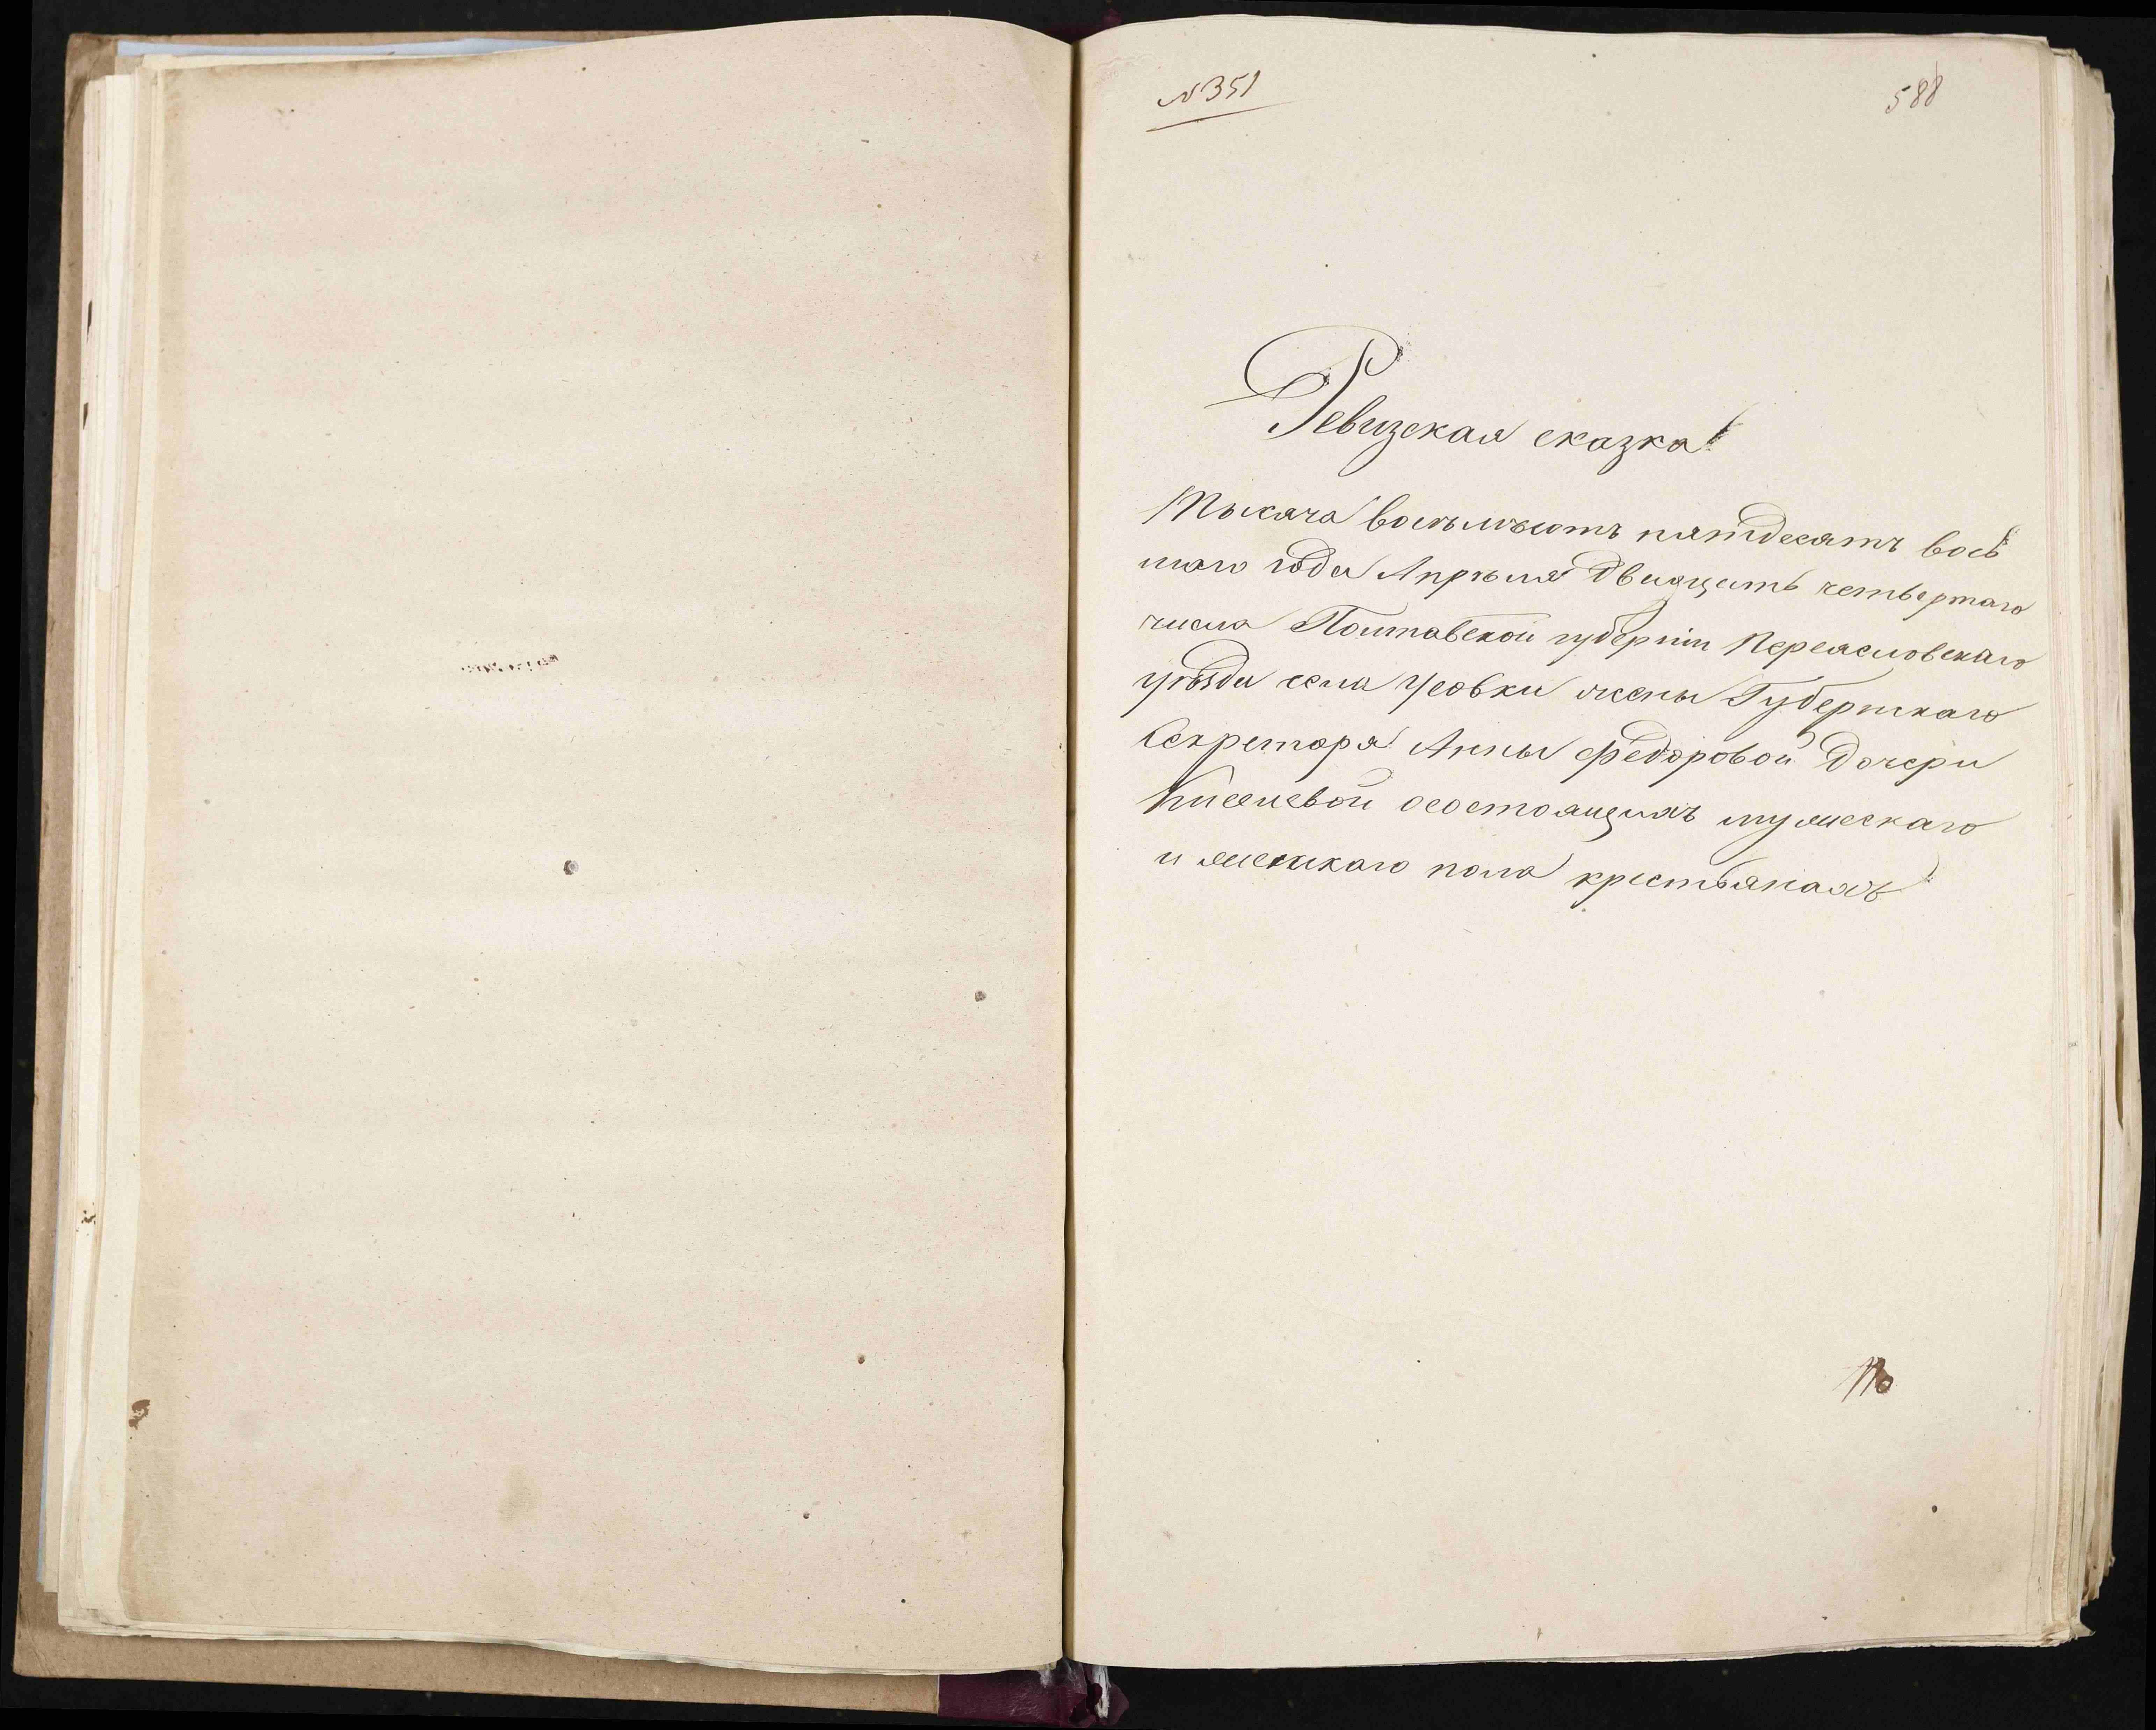 № 351
588
Ревизская сказка
Тысяча восъмъсотъ пятдесятъ вось
маго года Апръля двадцать четвертаго
числа Полтавской губерніи Переясловскаго
уѣзда села Усовки жены Губернскаго
Секретаря Анны Федоровой дочери
Киселевой осостоящихъ мужескаго
и женскаго пола крестьянахъ